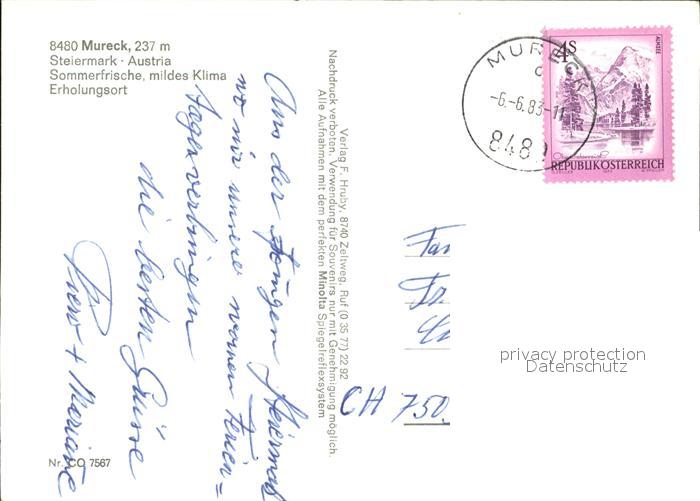 8480 Mureck, 237 m
Steiermark · Austria
Sommerfrische, mildes Klima
Erholungsort
Aus der
wo wir unsere warmen Ferien=
tage verbringen
die besten Grüsse
Piero + Mariane
Nr. CO 7567
Verlag F. Hruby, 8740 Zeltweg, Ruf (0 35 77) 22 92
Nachdruck verboten, Verwendung für Souvenirs nur mit Genehmigung möglich.
Alle Aufnahmen mit dem perfekten Minolta Spiegelreflexsystem
MURECK
-6.-6.83-11
8480
4S
ALMSEE
REPUBLIK ÖSTERREICH
Fam
CH 750
privacy protection
Datenschutz